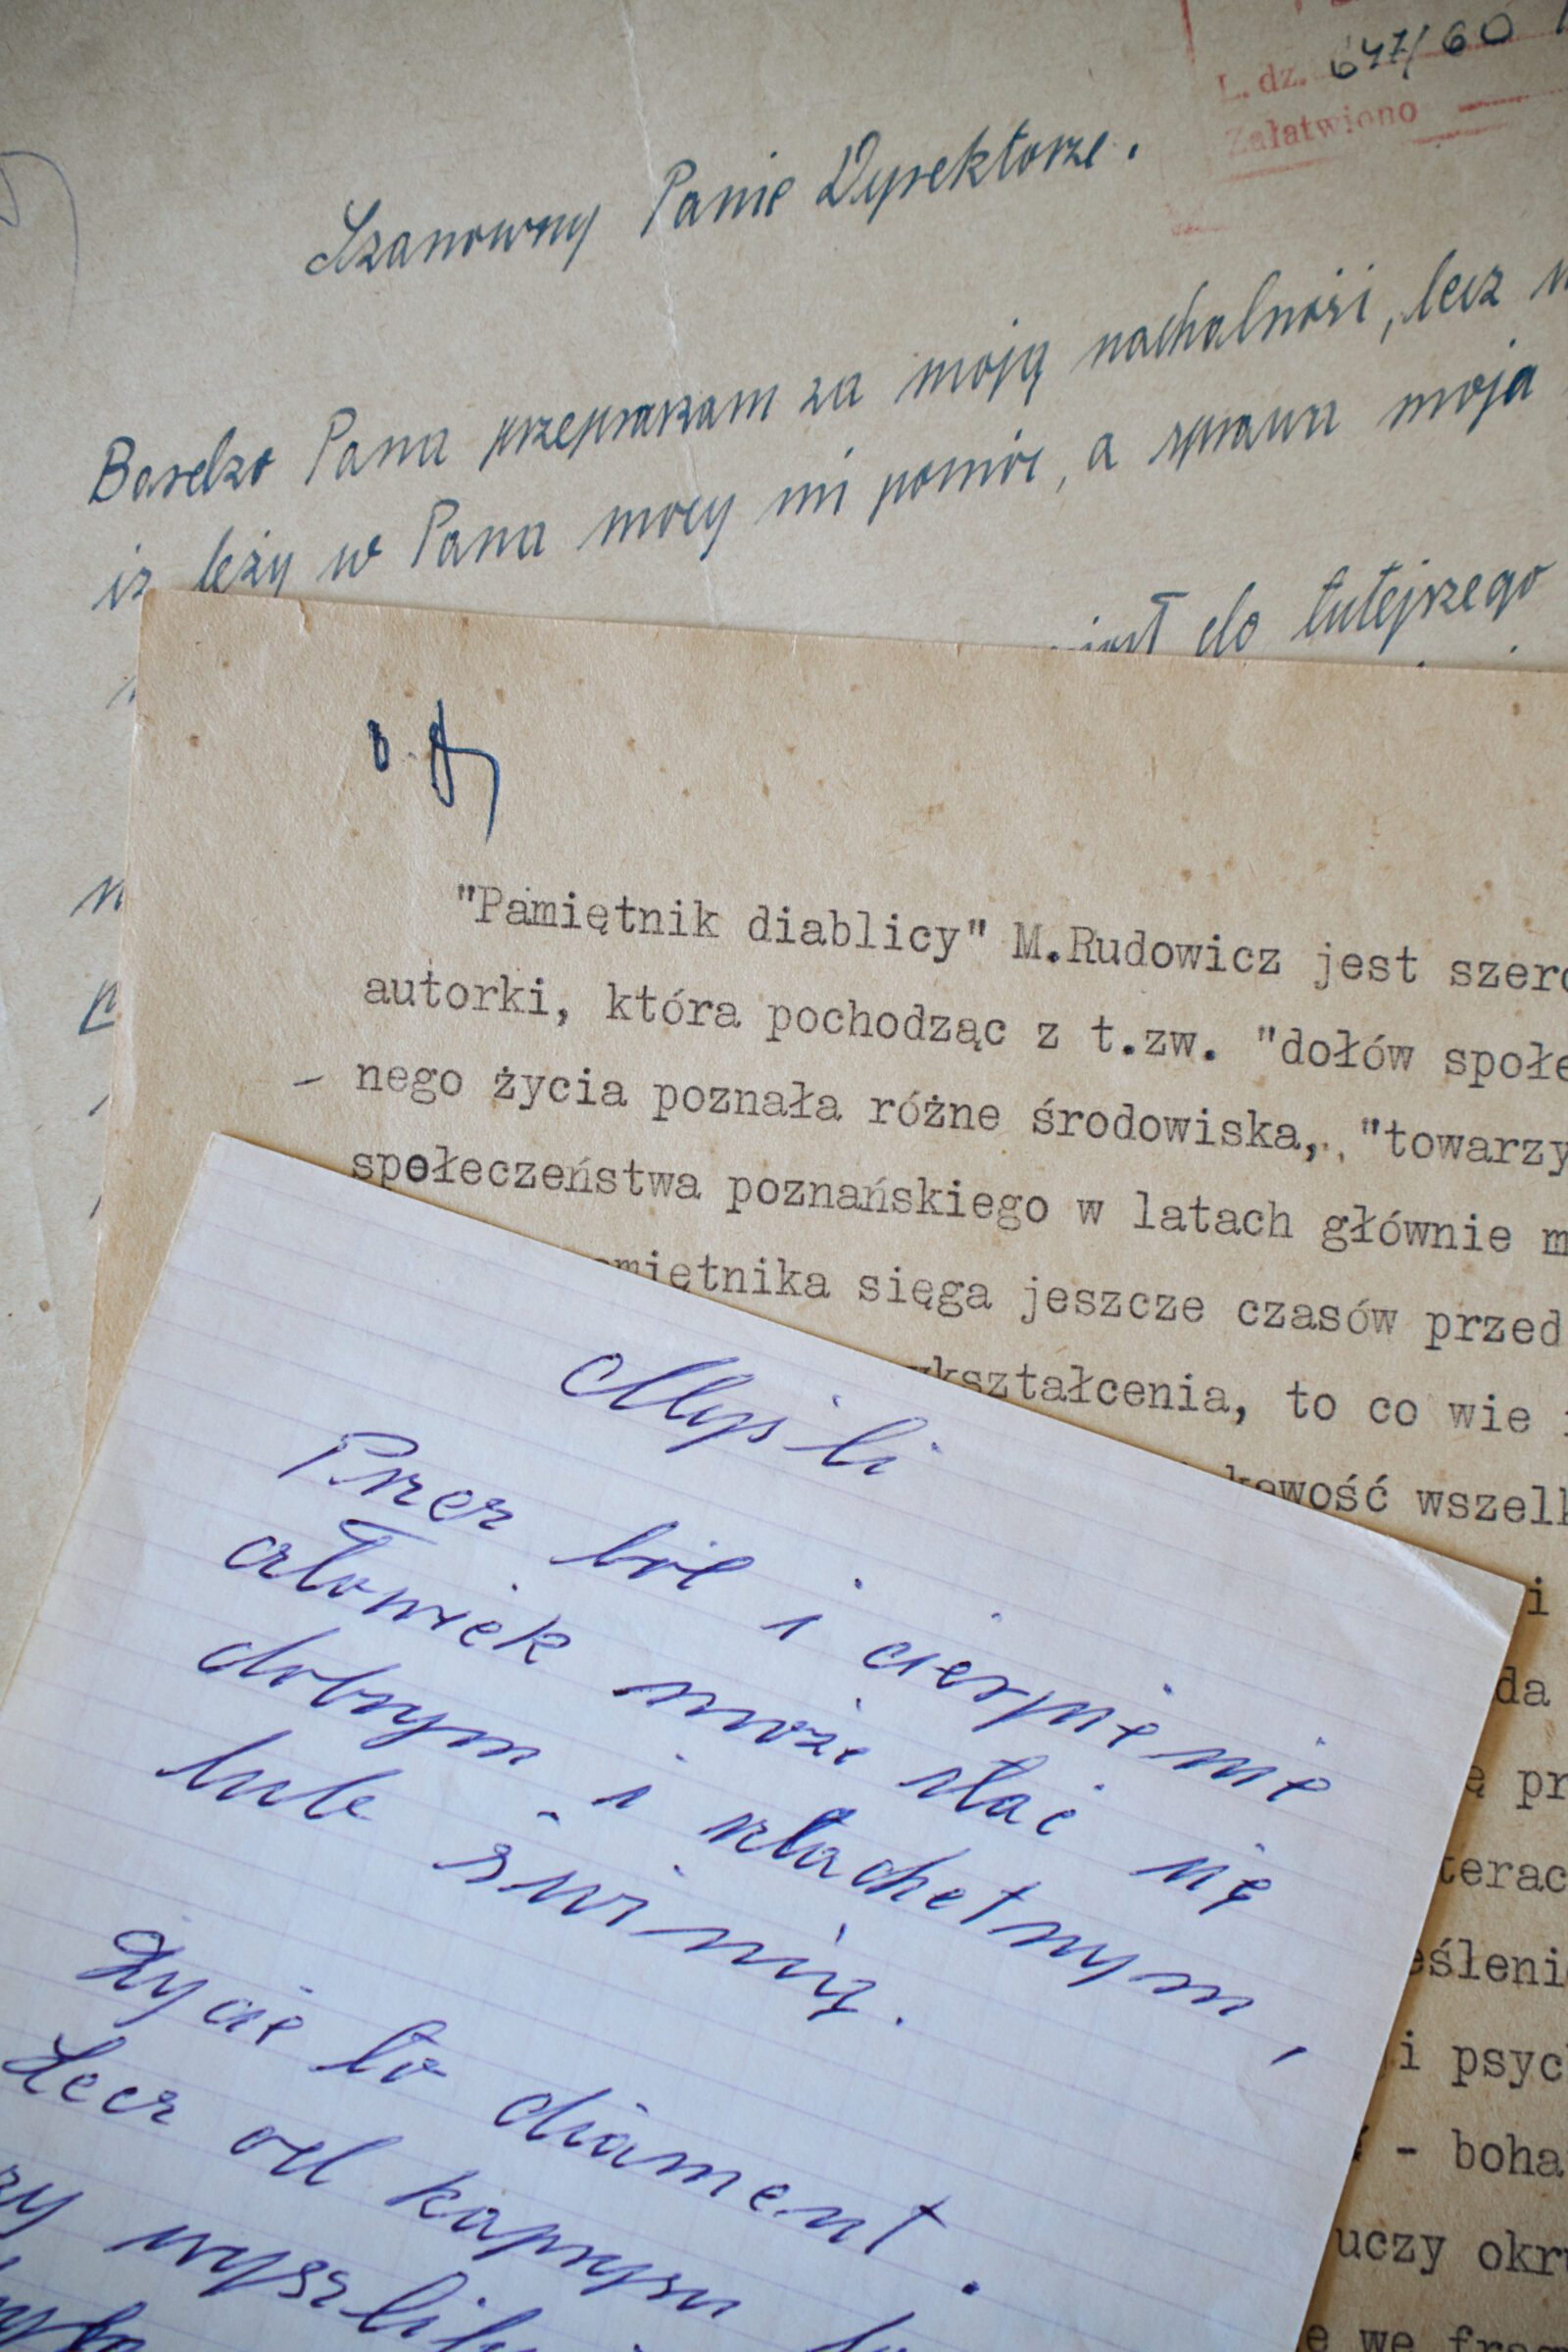 L. dz. 647/60
Załatwiono
Szanowny Panie Dyrektorze.
Bardzo Pana przepraszam za moją nachalność, lecz
iż leży w Pana mocy mi pomóc, a sprawa moja
do tutejszego
"Pamiętnik diablicy" M.Rudowicz jest szero
autorki, która pochodząc z t.zw. "dołów społe
– nego życia poznała różne środowiska, "towarzy
społeczeństwa poznańskiego w latach głównie m
miętnika sięga jeszcze czasów przed
kształcenia, to co wie
kawość wszelk
i
da
ę pr
terac
eśleni
i psyc
- boha
uczy okru
e we frag
Myśli
Przez ból i cierpienie
człowiek może stać się
dobrym i szlachetnym,
lub świnią.
Życie to diament.
Lecz od kaprysu
zy wyszli